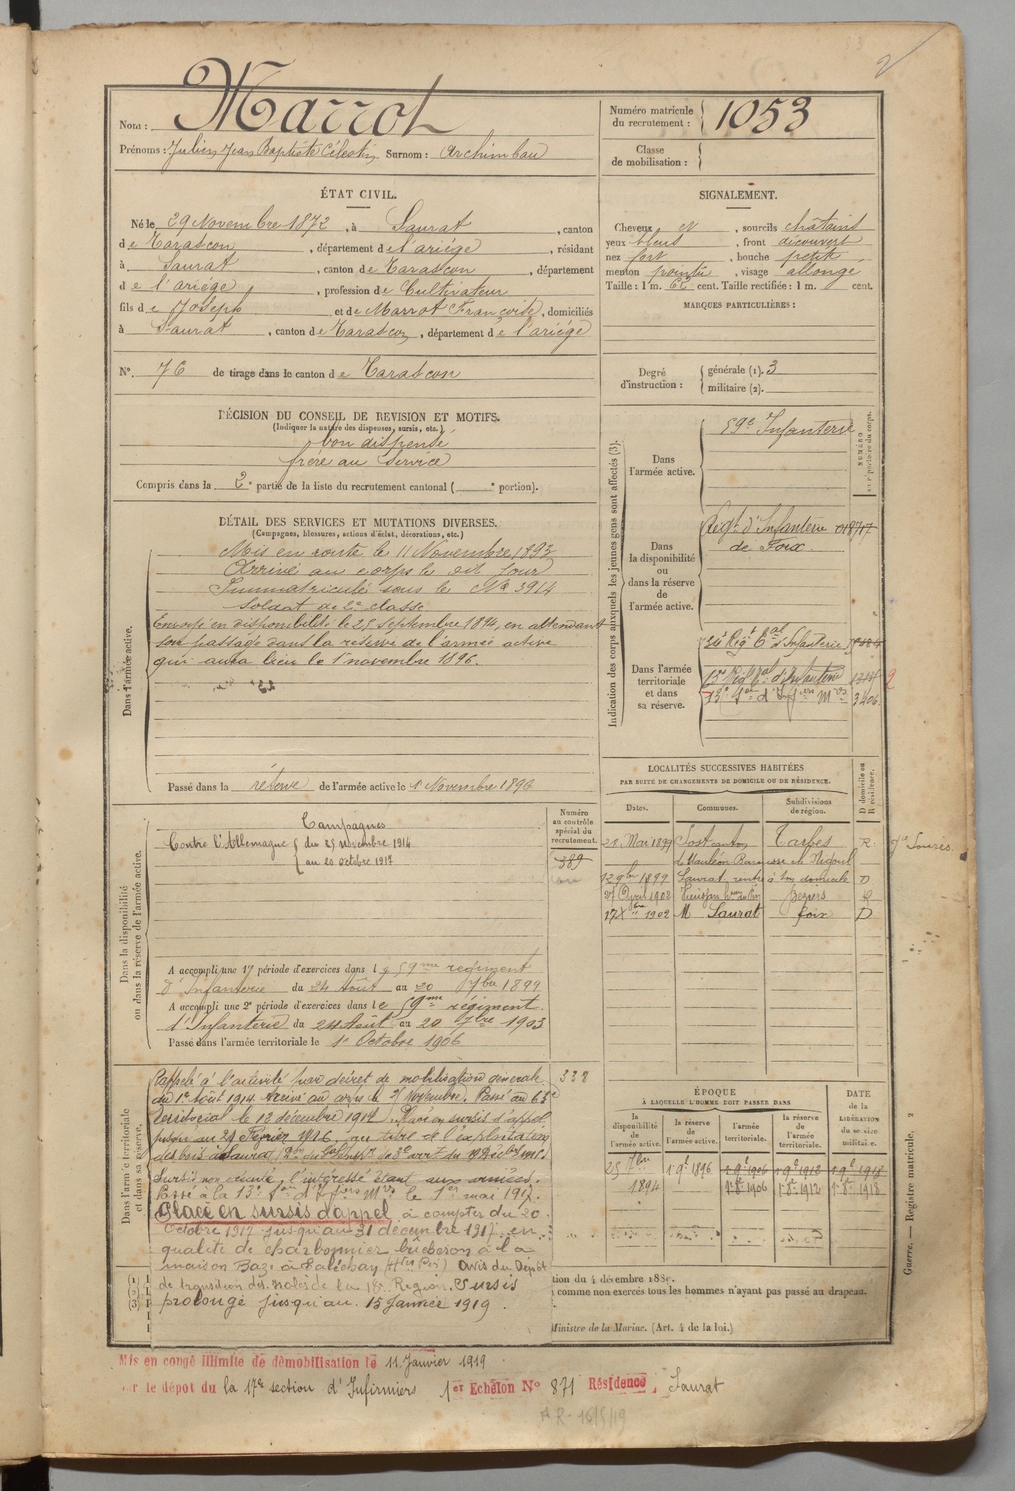 2
Nom : Marrot
Prénoms : Julien Jean Baptiste Célestin Surnom : Archimbau
Numéro matricule du recrutement : 1053
Classe de mobilisation :
ÉTAT CIVIL.
Né le 29 Novembre 1872, à Saurat, canton
de Tarascon, département de l'ariége, résidant
à Saurat, canton de Tarascon, département
de l'ariége, profession de Cultivateur
fils de Joseph et de Marrot Françoise, domiciliés
à Saurat, canton de Tarascon, département de l'ariége
N° 76 de tirage dans le canton de Tarascon
SIGNALEMENT.
Cheveux N, sourcils châtains
yeux bleus, front découvert
nez fort, bouche petite,
menton pointu, visage allongé
Taille : 1 m. 62 cent. Taille rectifiée : 1 m. cent.
MARQUES PARTICULIÈRES :
Degré d'instruction : générale (1). 3
militaire (2).
DÉCISION DU CONSEIL DE REVISION ET MOTIFS.
(Indiquer la nature des dispenses, sursis, etc.)
bon dispensé
frère au service
Compris dans la 2e partie de la liste du recrutement cantonal ( e portion).
DÉTAIL DES SERVICES ET MUTATIONS DIVERSES.
(Campagnes, blessures, actions d'éclat, décorations, etc.)
Dans l'armée active.
Mis en route le 11 Novembre 1893
Arrivé au corps le dit jour
Immatriculé sous le No 3914
Soldat de 2e classe
Envoyé en disponibilité le 25 Septembre 1894, en attendant
son passage dans la réserve de l'armée active
qui aura lieu le 1er novembre 1896.
Passé dans la réserve de l'armée active le 1 Novembre 1896
Indication des corps auxquels les jeunes gens sont affectés (3).
NUMÉRO au répertoire du corps.
Dans l'armée active.
59e Infanterie
Dans la disponibilité ou dans la réserve de l'armée active.
Regt d'Infanterie
de Foix
Dans l'armée territoriale et dans sa réserve.
134e Regt Tal d'Infanterie
135e Regt Tal d'Infanterie
13e Son d'Inf iers Mres 3406
2
Dans la disponibilité ou dans la réserve de l'armée active.
Numéro au contrôle spécial du recrutement.
389
Campagnes
Contre l'Allemagne du 25 novembre 1914
au 20 octobre 1917
A accompli une 1re période d'exercices dans le 59me régiment
d'Infanterie du 24 Août au 20 7bre 1899
A accompli une 2e période d'exercices dans le 59me régiment
d'Infanterie du 24 Août au 20 7bre 1903
Passé dans l'armée territoriale le 1er Octobre 1906
LOCALITÉS SUCCESSIVES HABITÉES
PAR SUITE DE CHANGEMENTS DE DOMICILE OU DE RÉSIDENCE.
Dates. Communes. Subdivisions de région. D domicile ou R résidence.
28 Mai 1899 Sost canton Tarbes R.
de Mauléon Barousse
1899 Saurat, rentre à son domicile D
27 Avril 1902 Béziers R
17 Xbre 1902 Saurat Foix D
Dans l'armée territoriale et dans sa réserve.
Rappelé à l'activité par décret de mobilisation générale 338
du 1er Août 1914. Arrivé au corps le Novembre. Passé au
territorial le 12 décembre 1914. Placé en sursis d'appel
jusqu'au 24 Février 1916, au titre et l'exploitation
des bois à Saurat
Sursis non exécuté, l'intéressé étant aux armées.
Passé à la 13e Son d'Inf iers Mres le 1er mai 1917.
Placé en sursis d'appel à compter du 20
Octobre 1917 jusqu'au 31 décembre 1917 en
qualité de charbonnier bûcheron à la
maison Baze à Saléchan (Htes Pes) Avis du Dépôt
de transition des isolés de la 18e Région. Sursis
prolongé jusqu'au 15 Janvier 1919.
ÉPOQUE
À LAQUELLE L'HOMME DOIT PASSER DANS
la disponibilité de l'armée active. la réserve de l'armée active. l'armée territoriale. la réserve de l'armée territoriale. DATE de la LIBÉRATION du service militaire.
25 7bre 1894 1896 1906 1912 1918
1906 1912 1918
(1)
(2)
(3)
comme non exercés tous les hommes n'ayant pas passé au drapeau.
Ministre de la Marine. (Art. 4 de la loi.)
Guerre. — Registre matricule. 2
Mis en congé illimité de démobilisation le 11 Janvier 1919
par le dépôt du la 17e section d'Infirmiers 1er Echelon No 871 Résidence, Saurat